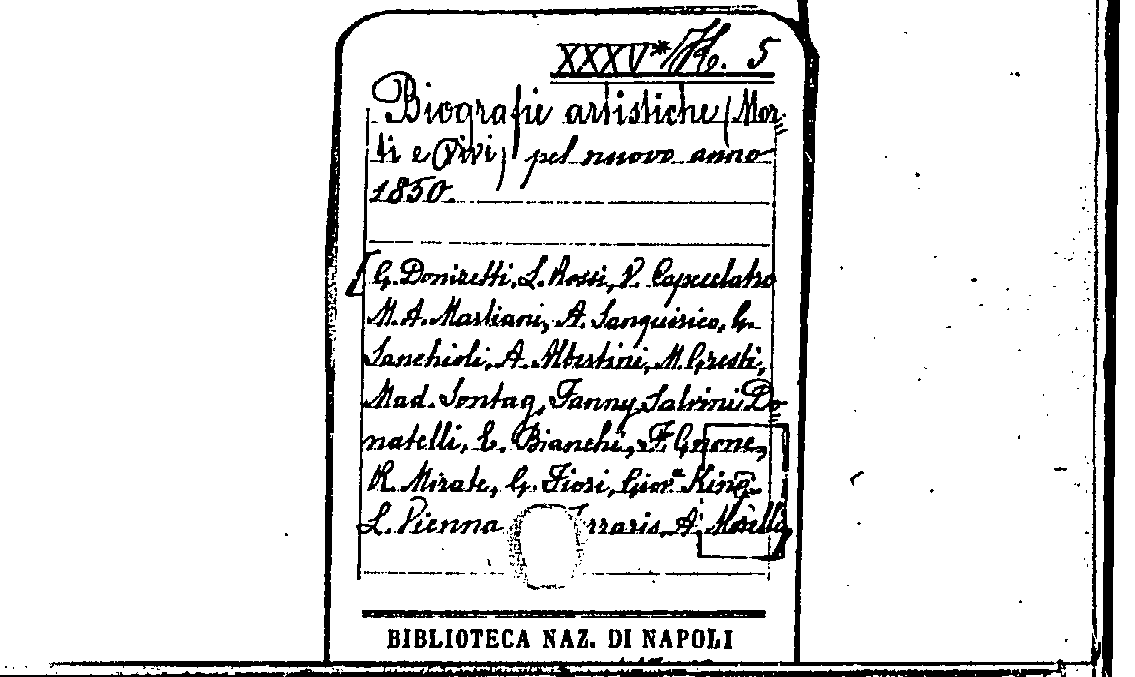 XXXV* H. 5
Biografie artistiche (Mor-
ti e Vivi) pel nuovo anno
1850.
[G. Donizetti, L. Rossi, V. Capecelatro
M. A. Mastiani, A. Sanguirico, G.
Sanchioli, A. Albertini, M. Gresti,
Mad. Sontag, Fanny Salvini Do-
natelli, E. Bianchi, F. Gnone,
R. Mirate, G. Fiori, Giov.ª King
L. Vienna rraris, A. Morelli
BIBLIOTECA NAZ. DI NAPOLI